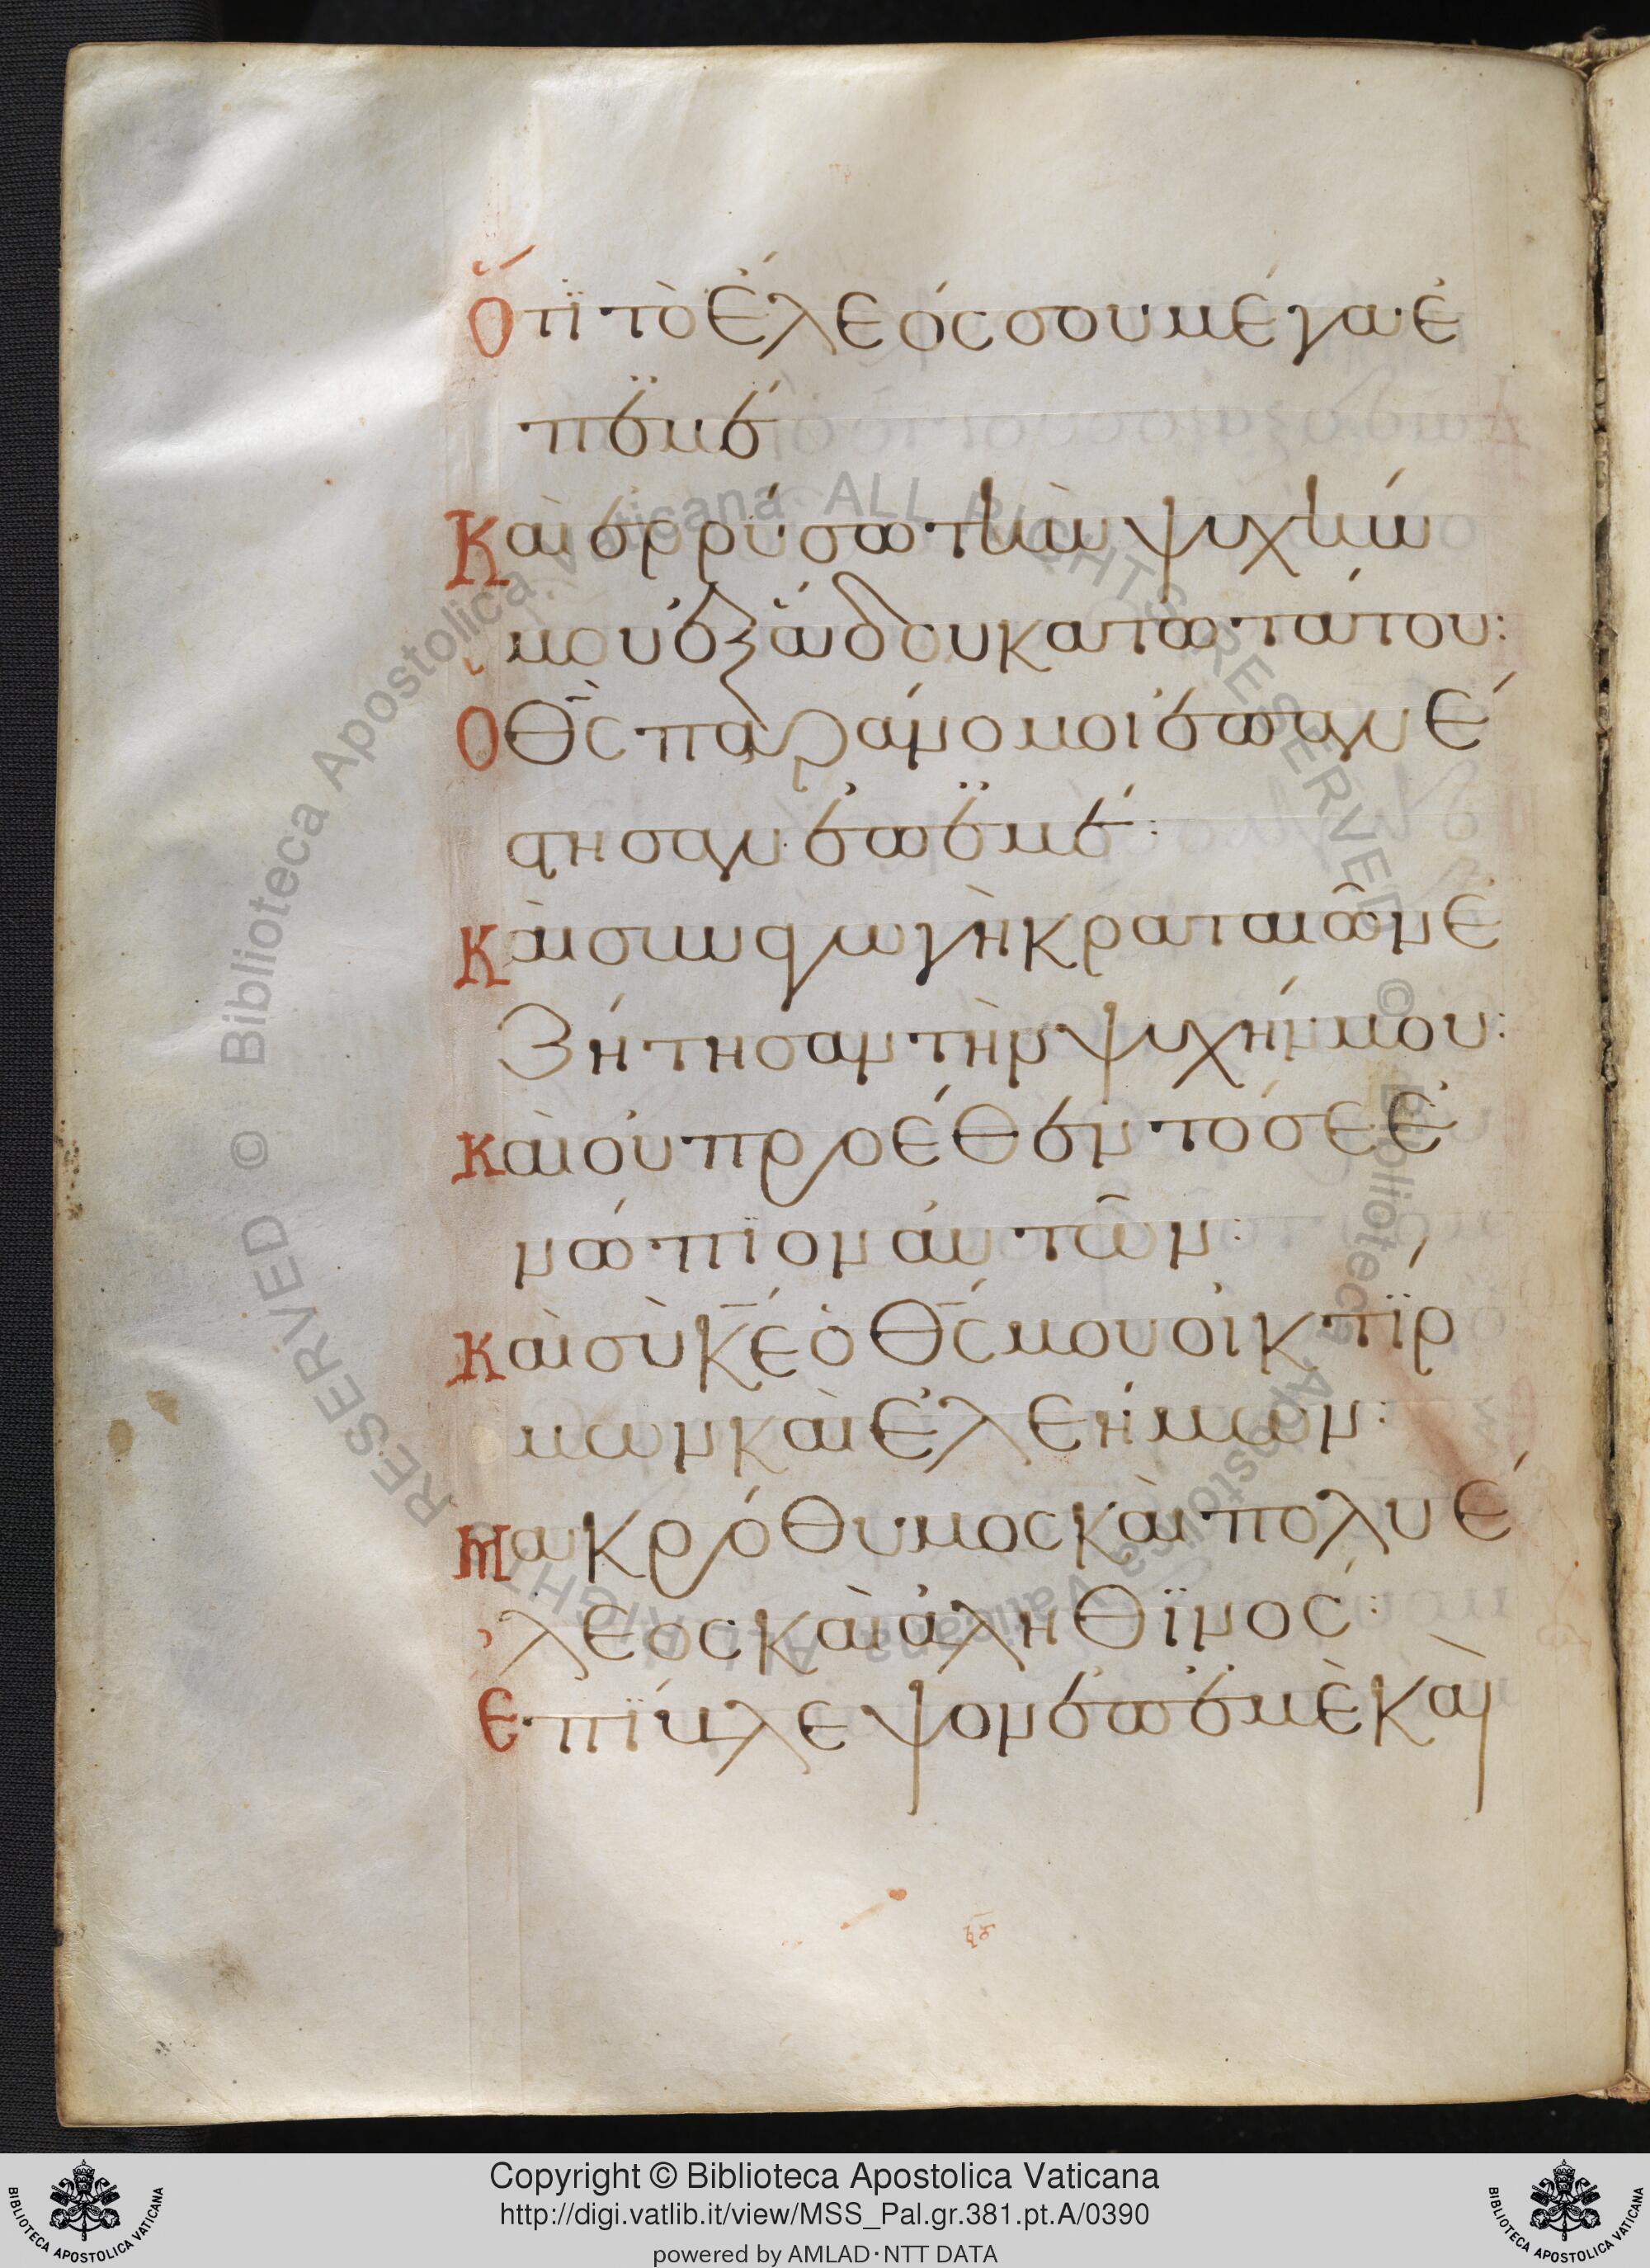 Ὅτϊ τὸ ἔλεός σου μέγα· ἐ
π' ἐμέ
Καὶ ἐρρύσω τὴν ψυχήν
μου ἐξ ἅδου κατωτάτου:
Ὁ Θ̅ς̅ παράνομοι ἐπανέ
στησαν ἐπ' ἐμέ:
Καὶ συναγωγὴ κραταιῶν ἐ
ζήτησαν τὴν ψυχήν μου:
Καὶ οὐ προέθεντό σε ἐ
νώπϊον αὐτῶν:
Καὶ σὺ Κ̅ε̅ ὁ Θ̅ς̅ μου οἰκτΐρ
μων καὶ ἐλεήμων:
Μακρόθυμος καὶ πολυέ
λεος καὶ ἀληθϊνός:
Ἐπΐβλεψον ἐπ' ἐμὲ καὶ
© Biblioteca Apostolica Vaticana ALL RIGHTS RESERVED © Biblioteca Apostolica Vaticana ALL RIGHTS RESERVED
Copyright © Biblioteca Apostolica Vaticana
http://digi.vatlib.it/view/MSS_Pal.gr.381.pt.A/0390
powered by AMLAD·NTT DATA
BIBLIOTECA APOSTOLICA VATICANA
BIBLIOTECA APOSTOLICA VATICANA